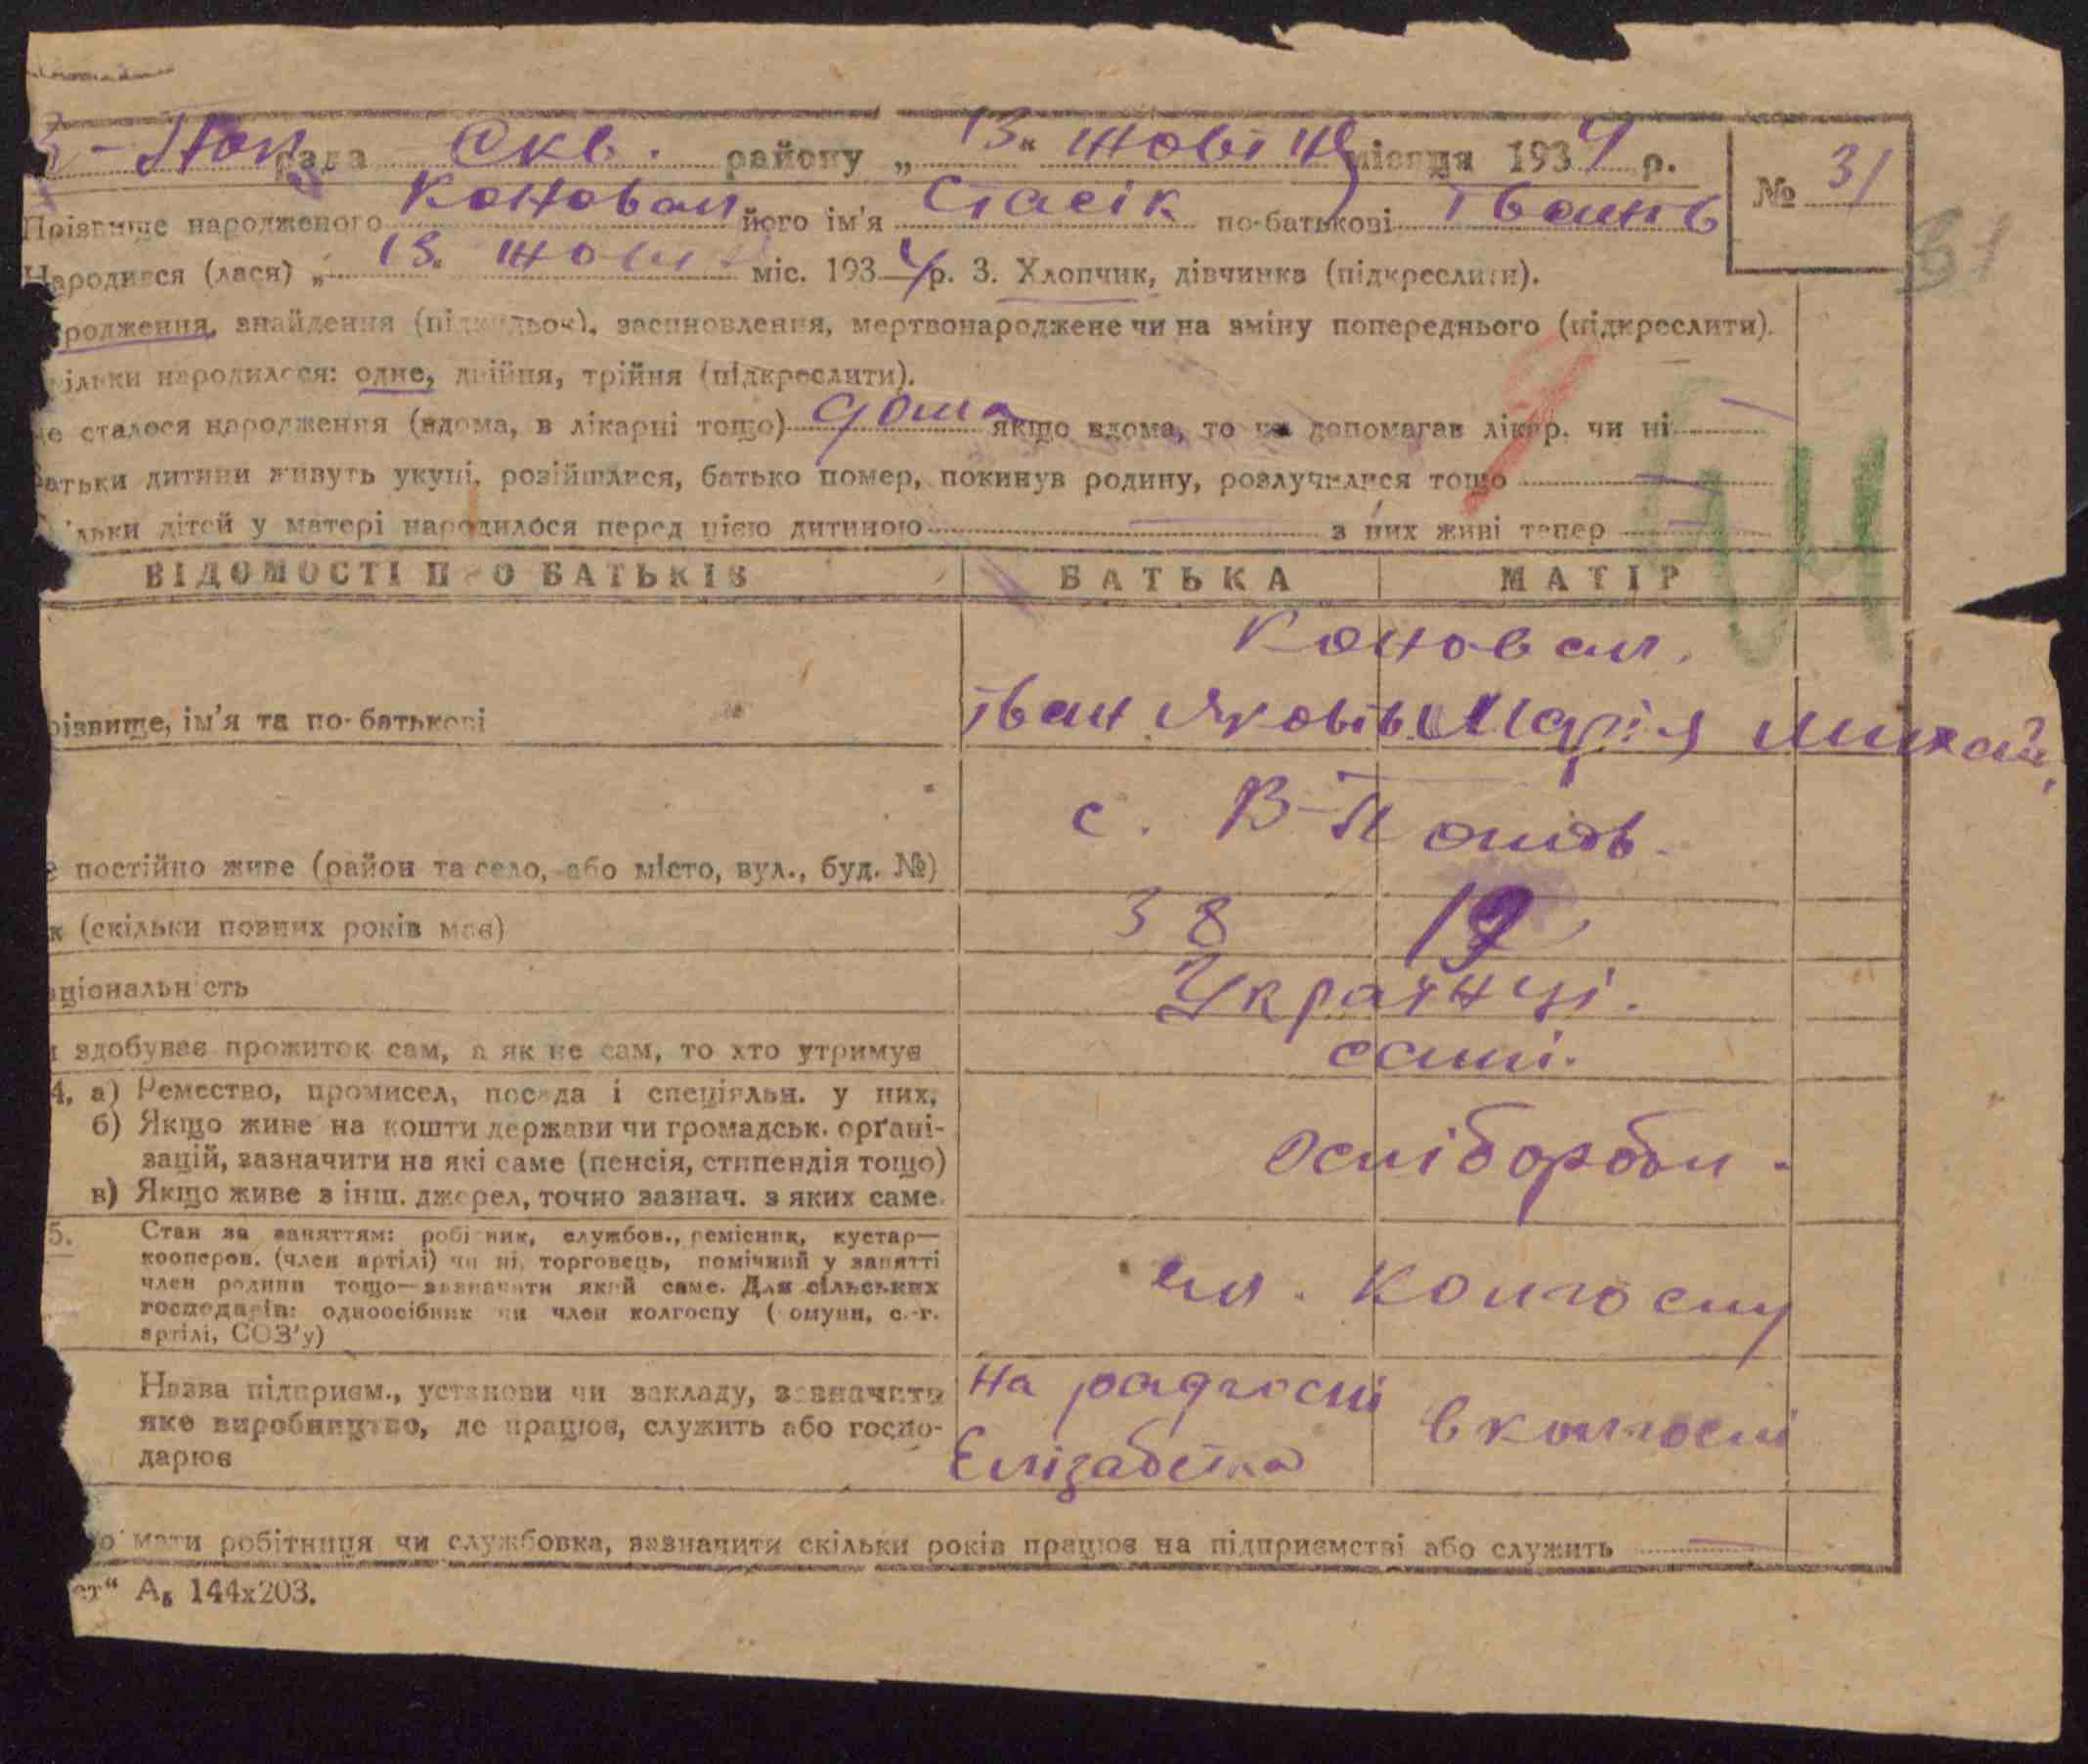 Поп рада Скв. району „ 13 " жовтня місяця 1934 р.
№ 31
Прізвище народженого Коновал його ім'я Стасік по-батькові Іванів
Народився (лася) „ 13 " жовт міс. 1934 р. 3. Хлопчик, дівчинка (підкреслити).
родження, знайдення (підкидьок), засиновлення, мертвонароджене чи на зміну попереднього (підкреслити).
ільки народилося: одне, двійня, трійня (підкреслити).
е сталося народження (вдома, в лікарні тощо) дома якщо вдома, то чи допомагав лікар. чи ні —
атьки дитини живуть укупі, розійшлися, батько помер, покинув родину, розлучилися тощо —
льки дітей у матері народилося перед цією дитиною — з них живі тепер —
ВІДОМОСТІ ПРО БАТЬКІВ БАТЬКА МАТІР
Коновал.
різвище, ім'я та по-батькові Іван Яковів Марія Михай.
с. В-Попів.
е постійно живе (район та село, або місто, вул., буд. №)
к (скільки повних років має) 38 19
аціональн'сть Українці.
и здобуває прожиток сам, а як не сам, то хто утримує самі.
4, а) Ремество, промисел, посада і спеціяльн. у них,
б) Якщо живе на кошти держави чи громадськ. орґані-
зацій, зазначити на які саме (пенсія, стипендія тощо)
в) Якщо живе з інш. джерел, точно зазнач. з яких саме.
5. Стан за заняттям: робітник, службов., ремісник, кустар—
кооперов. (член артілі) чи ні, торговець, помічний у занятті
член родини тощо—зазначити який саме. Для сільських
господарів: одноосібник чи член колгоспу (комуни, с.-г.
артілі, СОЗ'у)
чл. колгоспу
Назва підприєм., установи чи закладу, зазначити
яке виробництво, де працює, служить або госпо-
дарює
на радгоспі
Єлізабетка
в колгоспі
о мати робітниця чи службовка, зазначити скільки років працює на підприємстві або служить —
ет" А₅ 144х203.